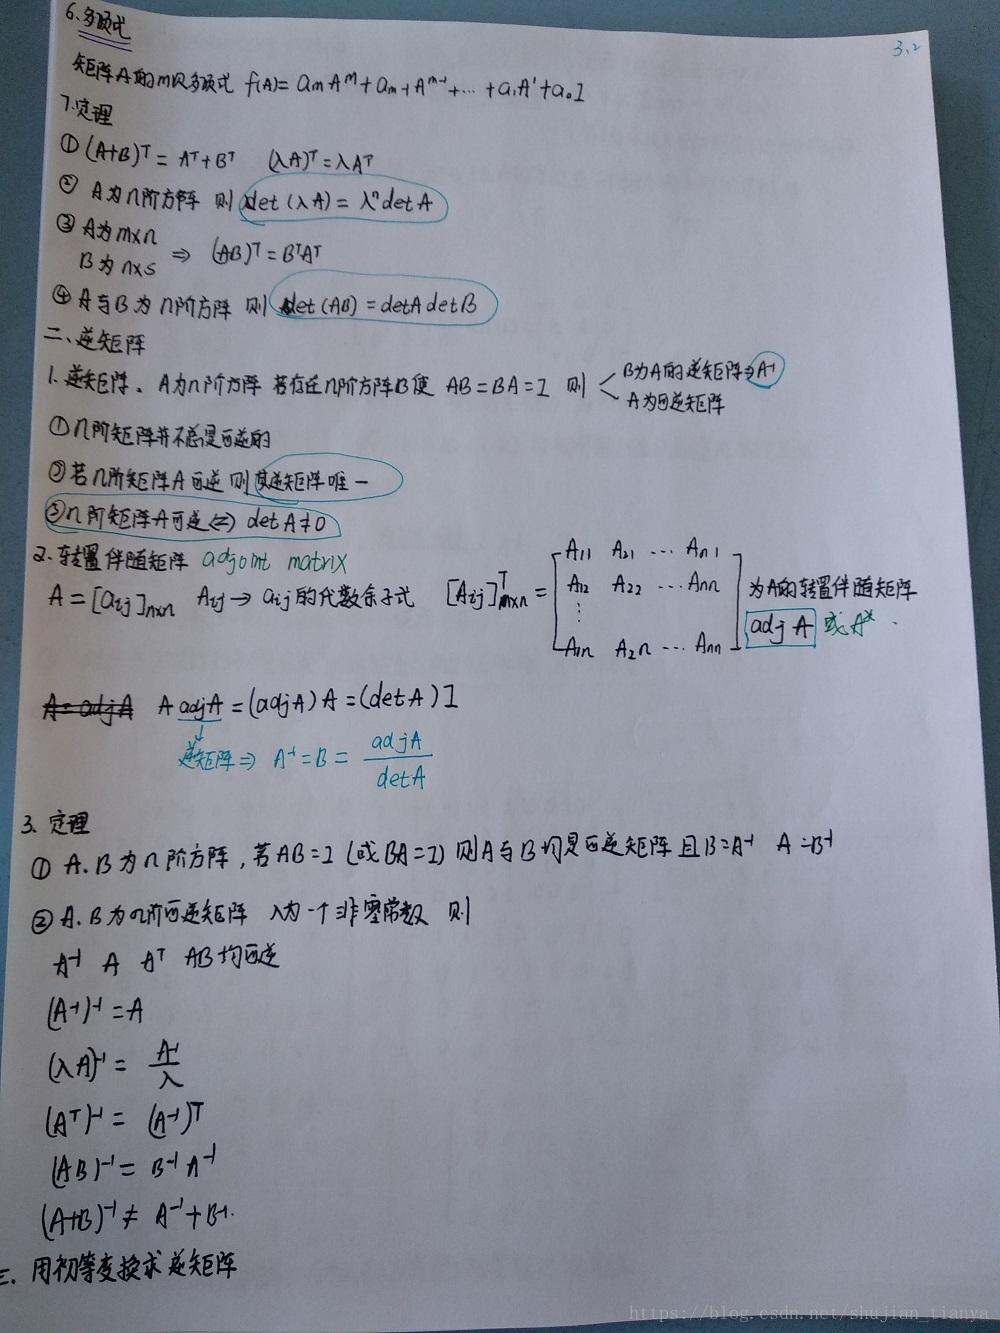 3.2
6.多项式
矩阵A的m次多项式 f(A)= amA^m + am-1A^m-1 + ... + a1A' + a0I
7.定理
① (A+B)^T = A^T + B^T (λA)^T = λA^T
② A为n阶方阵 则 det(λA) = λ^n detA
③ A为m×n
B为n×s ⇒ (AB)^T = B^TA^T
④ A与B为n阶方阵 则 det(AB) = detA detB
二、逆矩阵
1. 逆矩阵、A为n阶方阵 若存在n阶方阵B使 AB = BA = I 则 B为A的逆矩阵⇒A^-1
A为可逆矩阵
① n阶矩阵并不总是可逆的
② 若n阶矩阵A可逆则其逆矩阵唯一
③ n阶矩阵A可逆⇔ detA≠0
2. 转置伴随矩阵 adjoint matrix
A = [aij]n×n Aij → aij的代数余子式 [Aij]^T m×n = 为A的转置伴随矩阵
A11 A21 ... An1
A12 A22 ... Ann
⋮
A1n A2n ... Ann
adj A 或 A*
A = adjA A adjA = (adjA)A = (detA)I
逆矩阵⇒ A^-1 = B = adjA / detA
3. 定理
① A.B为n阶方阵,若AB=I (或BA=I) 则A与B均是可逆矩阵 且B=A^-1 A=B^-1
② A.B为n阶可逆矩阵 λ为一个非零常数 则
A^-1 A A^T AB均可逆
(A^-1)^-1 = A
(λA)^-1 = A^-1 / λ
(A^T)^-1 = (A^-1)^T
(AB)^-1 = B^-1 A^-1
(A+B)^-1 ≠ A^-1 + B^-1.
三. 用初等变换求逆矩阵
https://blog.csdn.net/shujian_tianya